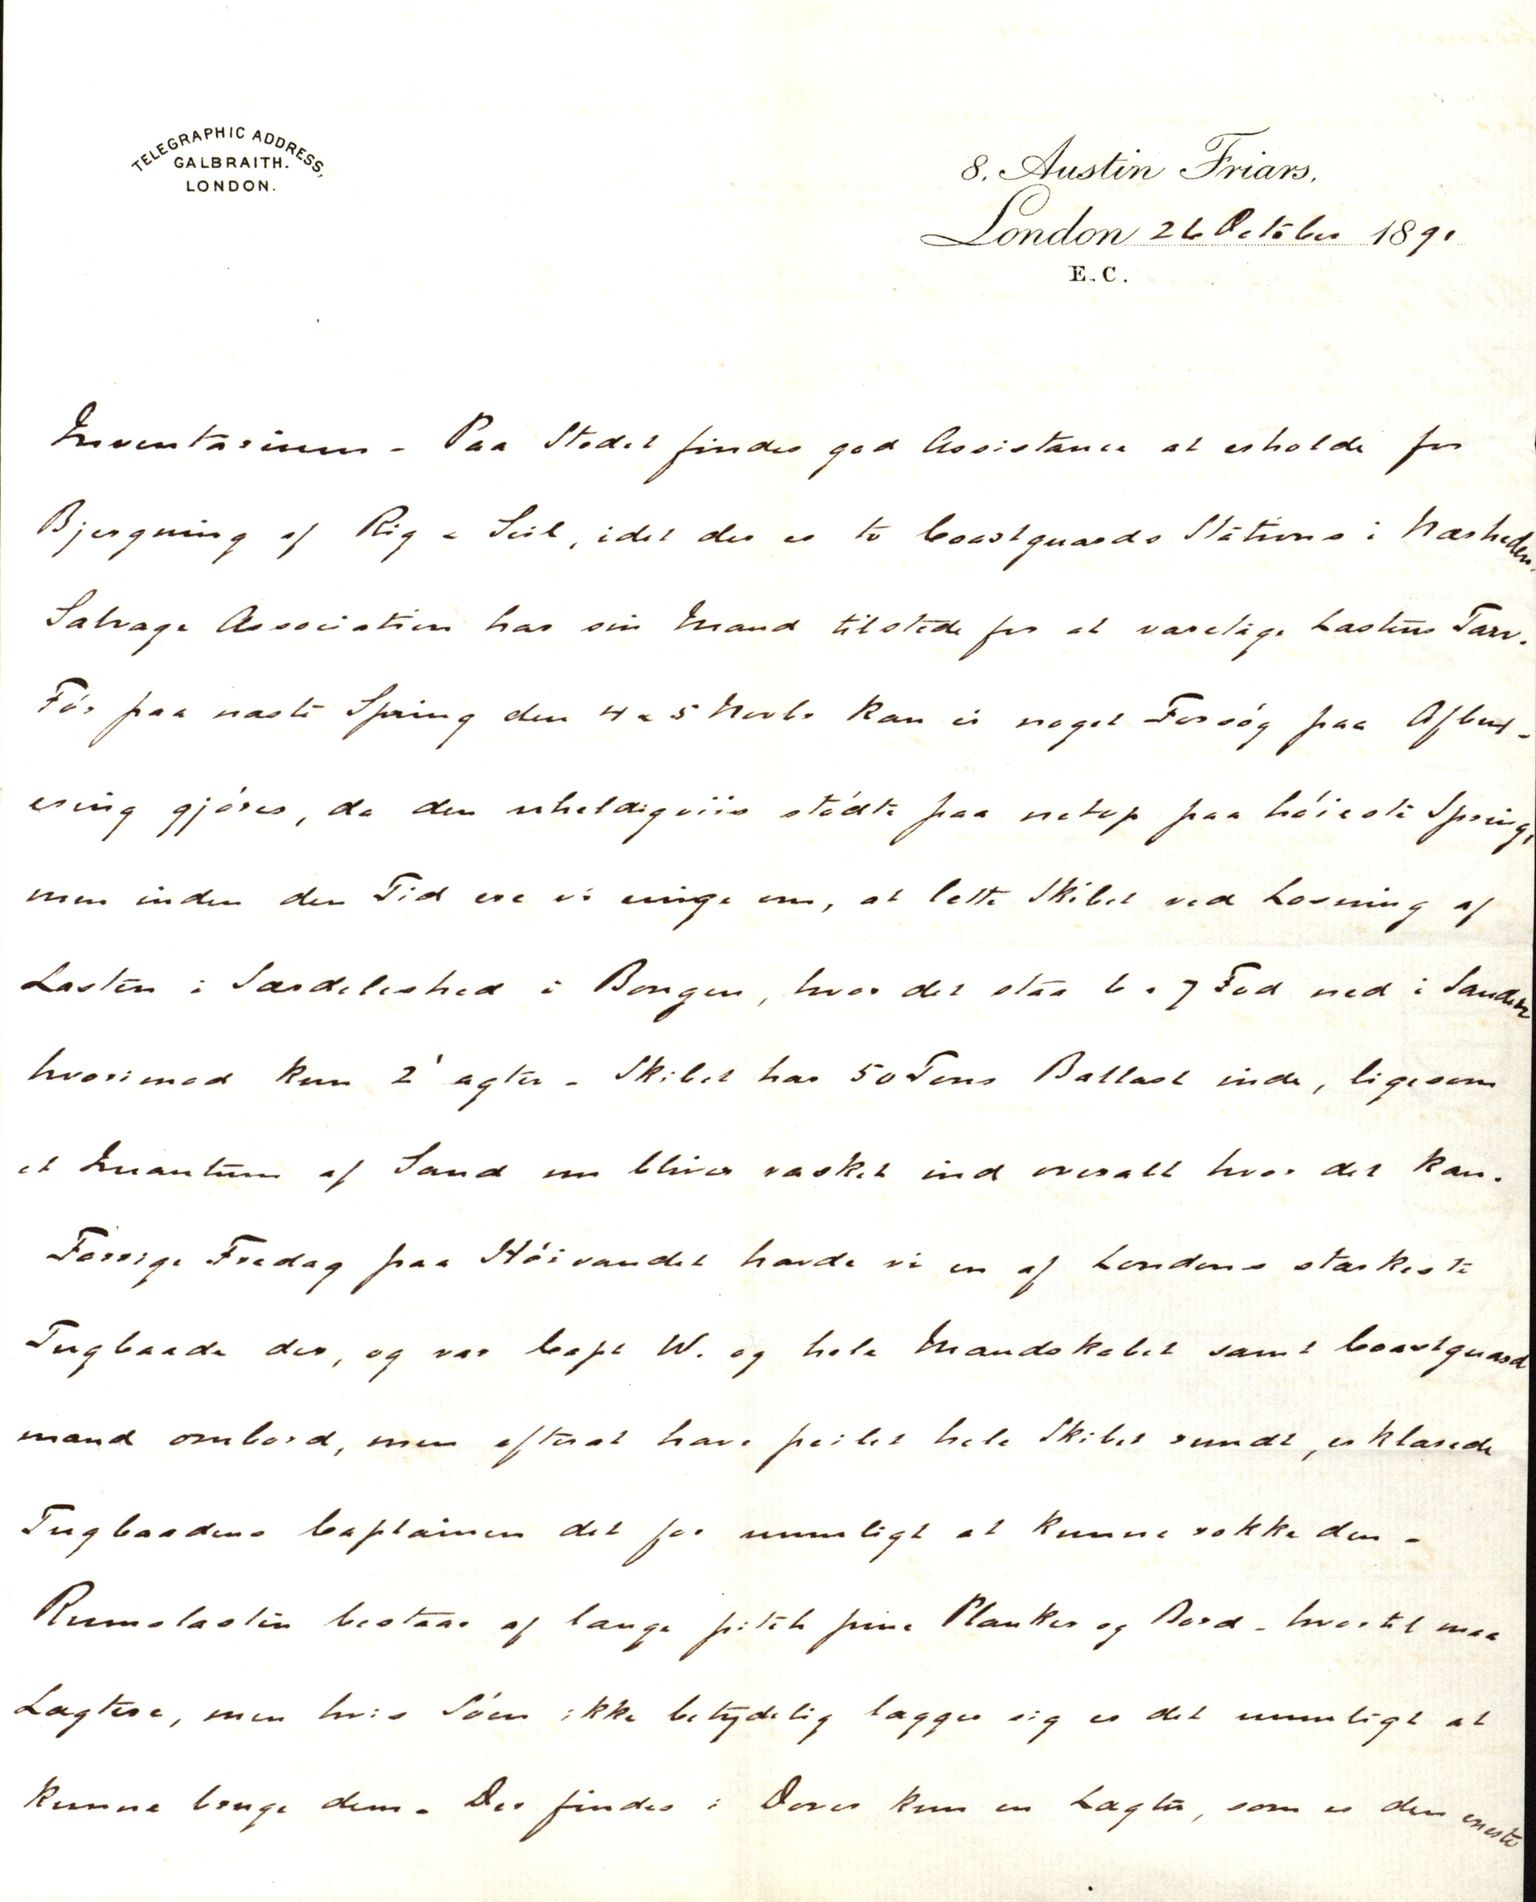 TELEGRAPHIC ADDRESS,
GALBRAITH.
LONDON.
8, Austin Friars,
London 26 October 1891
E.C.
Inventarium – Paa Stedet findes god Assistance at erholde for
Bjergning af Rig & Seil, idet der er to Coastguards Stations i Nærheden.
Salvage Association har sin Mand tilstede for at varetage Lastens Tarv.
Før paa næste Spring den 4 a 5 Novbr kan ei noget Forsøg paa Afbux-
ering gjøres, da den uheldigviis stødte paa netop paa høieste Spring,
men inden den Tid ere vi enige om, at lette Skibet ved Losning af
Lasten i Særdeleshed i Bougen, hvor det staa 6 a 7 Fod ned i Sanden
hvorimod kun 2' agter – Skibet har 50 Tons Ballast inde, ligesom
et Quantum af Sand nu bliver vasket ind overalt hvor det kan.
Forrige Fredag paa Høivandet havde vi en af Londons stærkeste
Tugbaade der, og var Capt W. og hele Mandskabet samt Coastguard
mand ombord, men efterat have peilet hele Skibet rundt, erklærede
Tugbaadens Captainen det for umuligt at kunne rokke den –
Rumslasten bestaar af lange pitch pine Planker og Bord – hvortil maa
Lægtere, men hvis Søen ikke betydelig lægger sig er det umuligt at
kunne bruge dem – Der findes i Dover kun en Lægter, som er den eneste